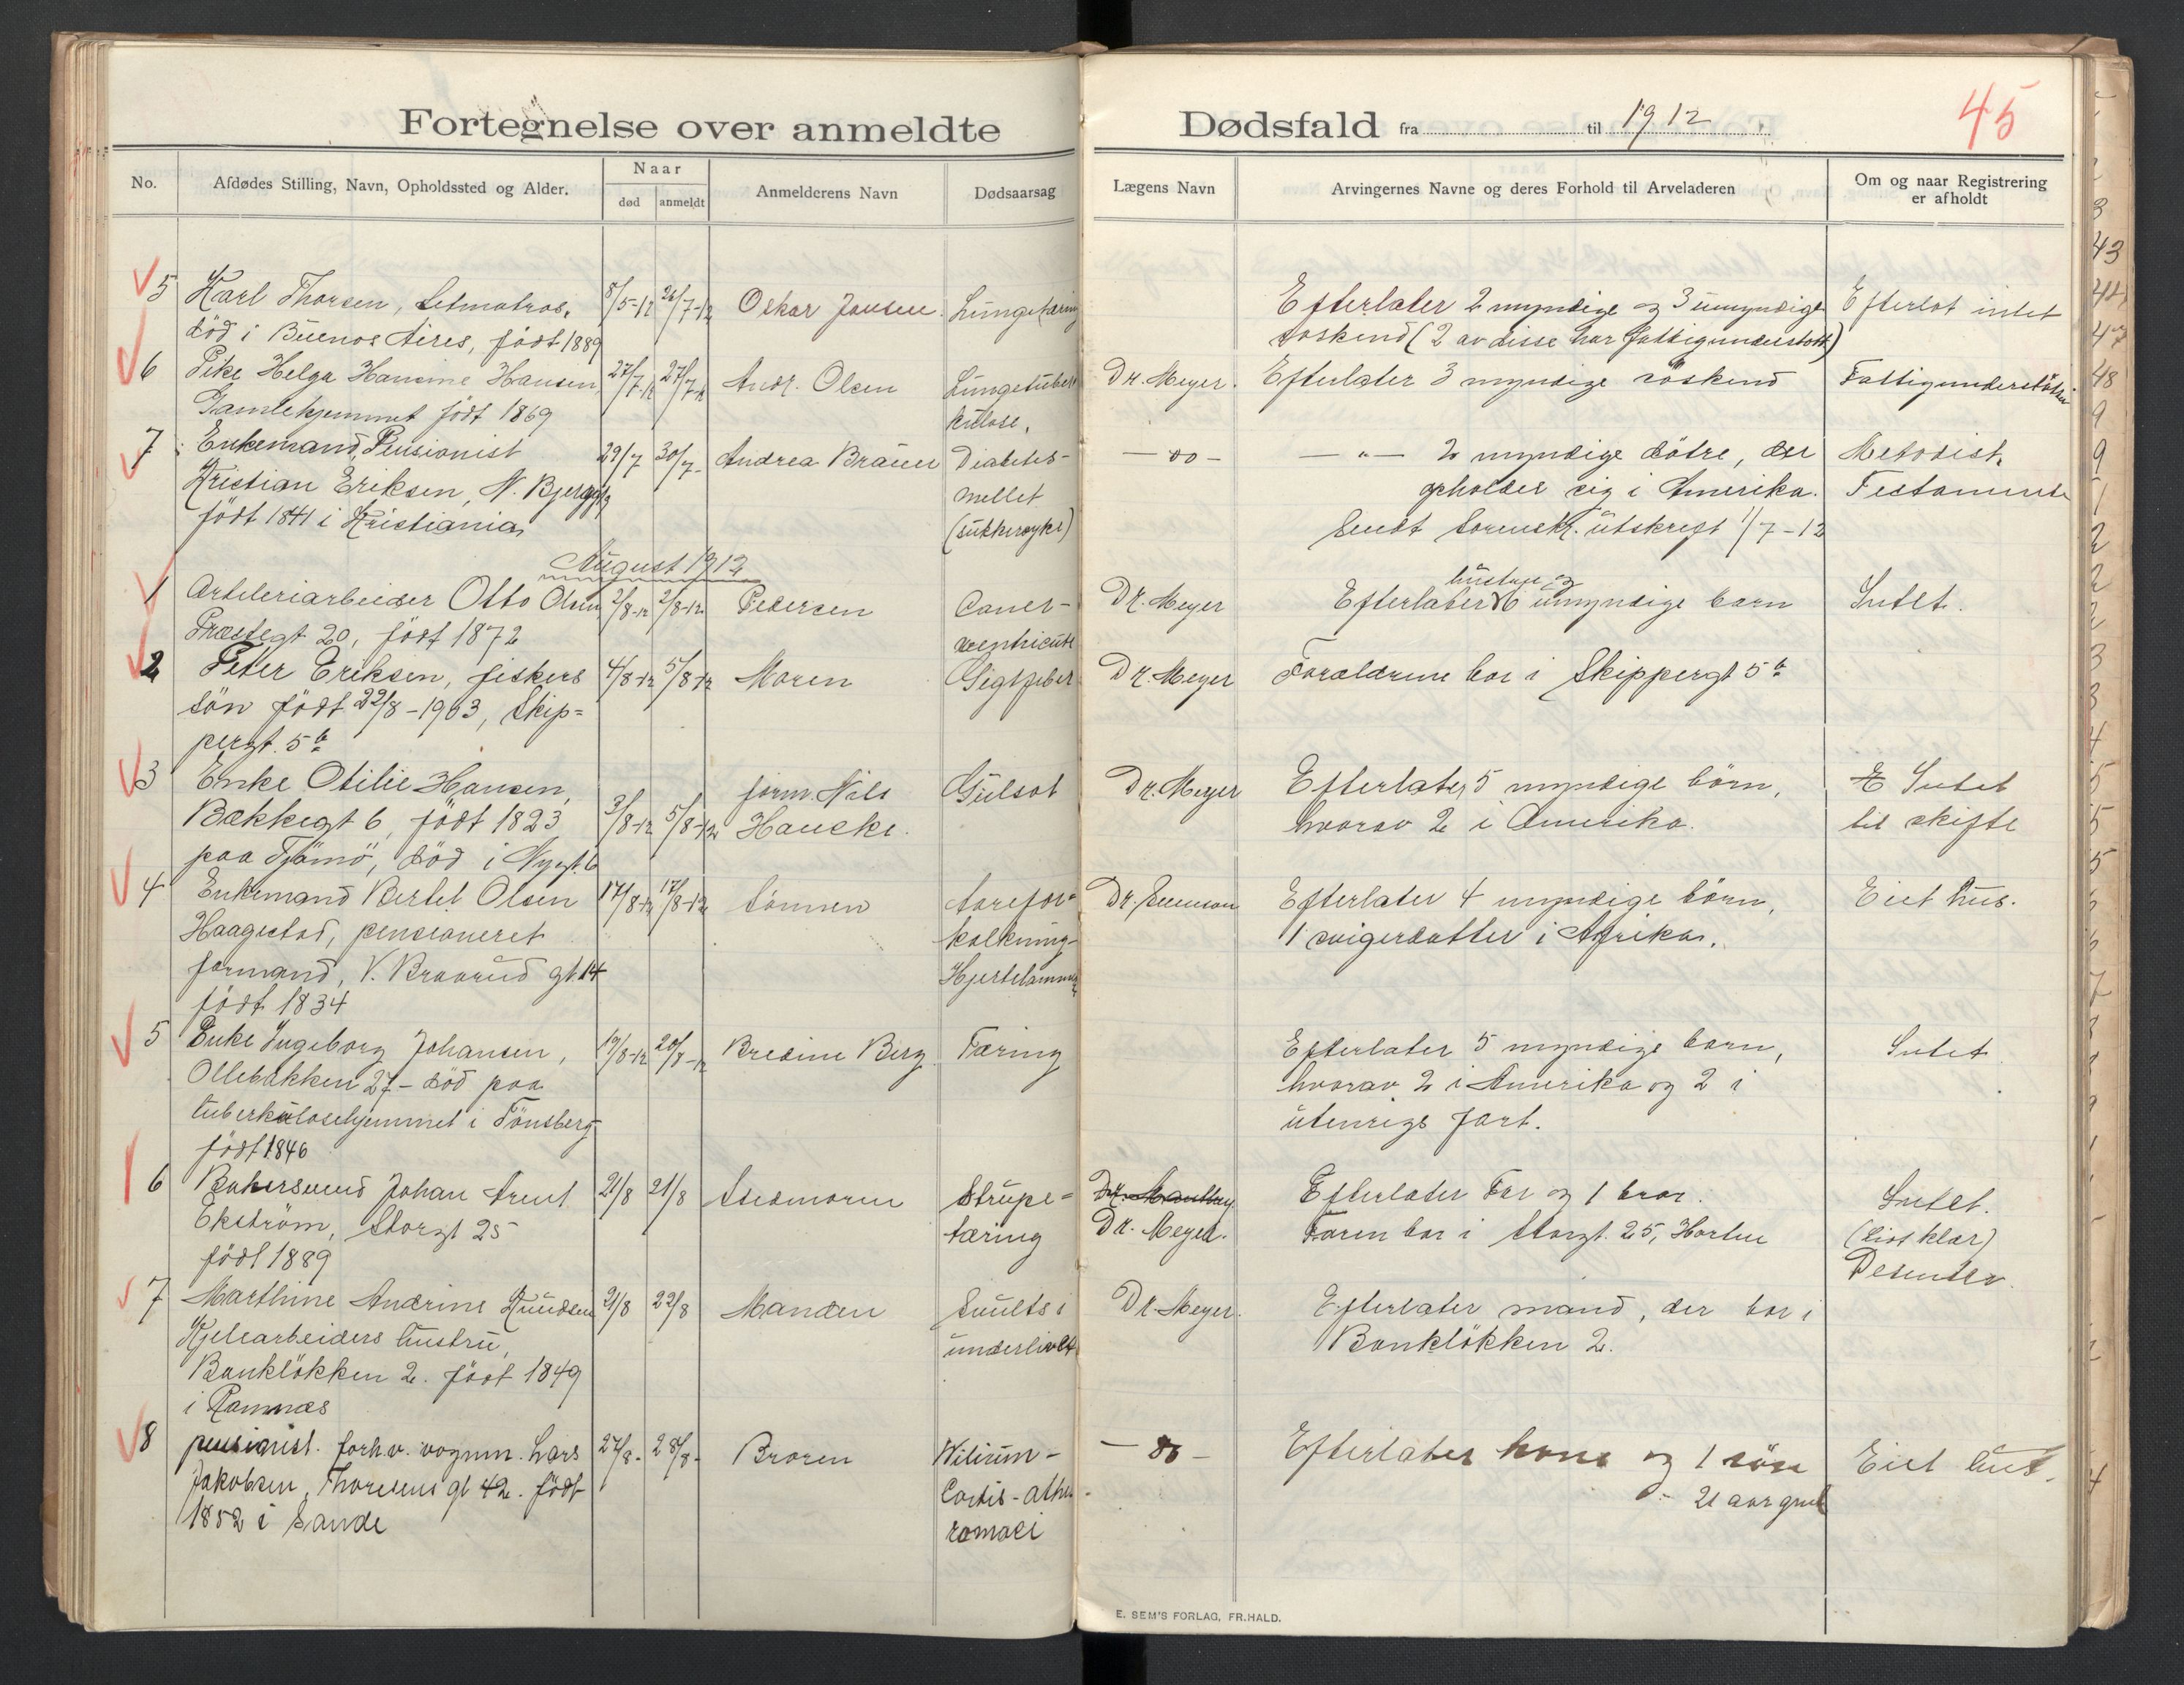 Fortegnelse over anmeldte
Dødsfald fra til 1912
45
No.
Afdødes Stilling, Navn, Opholdssted og Alder.
Naar
død
anmeldt
Anmelderens Navn
Dødsaarsag
Lægens Navn
Arvingernes Navne og deres Forhold til Arveladeren
Om og naar Registrering
er afholdt
5 Karl Thorsen, Letmatros, 8/5-12 26/7-12 Oskar Jansen Lungetæring Efterlater 2 myndige og 3 umyndige Efterlot intet
död i Buenos Aires, födt 1889 söskend (2 av disse har fattigunderstött)
6 Pike Helga Hansine Hansen, 27/7-12 27/7-12 Andr. Olsen Lungetuber Dr. Meyer. Efterlater 3 myndige söskend Fattigunderstöttet
Gamlehjemmet födt 1869 kulose,
7 Enkemand, Pensionist 29/7 30/7- Andrea Bräuer Diabetes- — do — — " — 2 myndige dötre, der Metodist,
Kristian Eriksen, N. Bjerggt mellet opholder sig i Amerika. Testamente
födt 1841 i Kristiania (sukkersyke) Sendt Sorenskr. utskrift 1/7-12
August 1912
1 Arteleriarbeider Otto Olsen 2/8-12 2/8-12 Pedersen Cancer- Dr. Meyer hustru og
Efterlater 6 umyndige barn Intet.
Præstegt 20, födt 1872 ventricule
2 Peter Eriksen, fiskers 4/8-12 5/8-12 Moren Gigtfeber Dr. Meyer Forældrene bor i Skippergt 5b
sön födt 22/8-1903, Skip-
pergt. 5b
3 Enke Otilie Hansen, form. Nils Gulsot Dr. Meyer Efterlater 5 myndige börn, E Intet
Bakkegt 6, födt 1823 3/8-12 5/8-12 Hanche. hvorav 2 i Amerika. til skifte
paa Tjömö, död i Nygt. 6
4 Enkemand Bertel Olsen 17/8-12 17/8-12 Sönnen Aarefor- Dr. Efterlater 4 myndige börn, Eiet hus.
Haagestad, pensioneret kalkning- 1 svigerdatter i Afrika.
formand, V. Braarud gt. 14 Hjertelammelse
födt 1834
5 Enke Ingeborg Johansen, 19/8-12 20/8-12 Bredine Berg Tæring Efterlater 5 myndige barn, Intet
Ollebakken 27 - död paa hvorav 2 i Amerika og 2 i
tuberkulosehjemmet i Tönsberg utenrigs fart.
födt 1846
6 Bakersvend Johan Arent 21/8 21/8 Stedmoren Strupe- Efterlater Far og 1 bror. Intet.
Ekström, Storgt 25 tæring Dr. Meyer. Faren bor i Storgt. 25, Horten (Eios klar)
födt 1889 Desember.
7 Marthine Andrine Knudsen 21/8 22/8 Manden Svulst i Dr. Meyer. Efterlater mand, der bor i
Kjelearbeiders hustru, underlivet Banklökken 2.
Banklökken 2. födt 1849
i Ramnæs
8 pensionist. forh.v. vognm. Lars 27/8- 28/8- Broren Wilium- — do — Efterlater kone og 1 sön Eiet hus.
Jakobsen, Thoresens gt 42. födt Cordis-athe- 21 aar gml
1852 i Sande romaci
E. SEM'S FORLAG, FR.HALD.